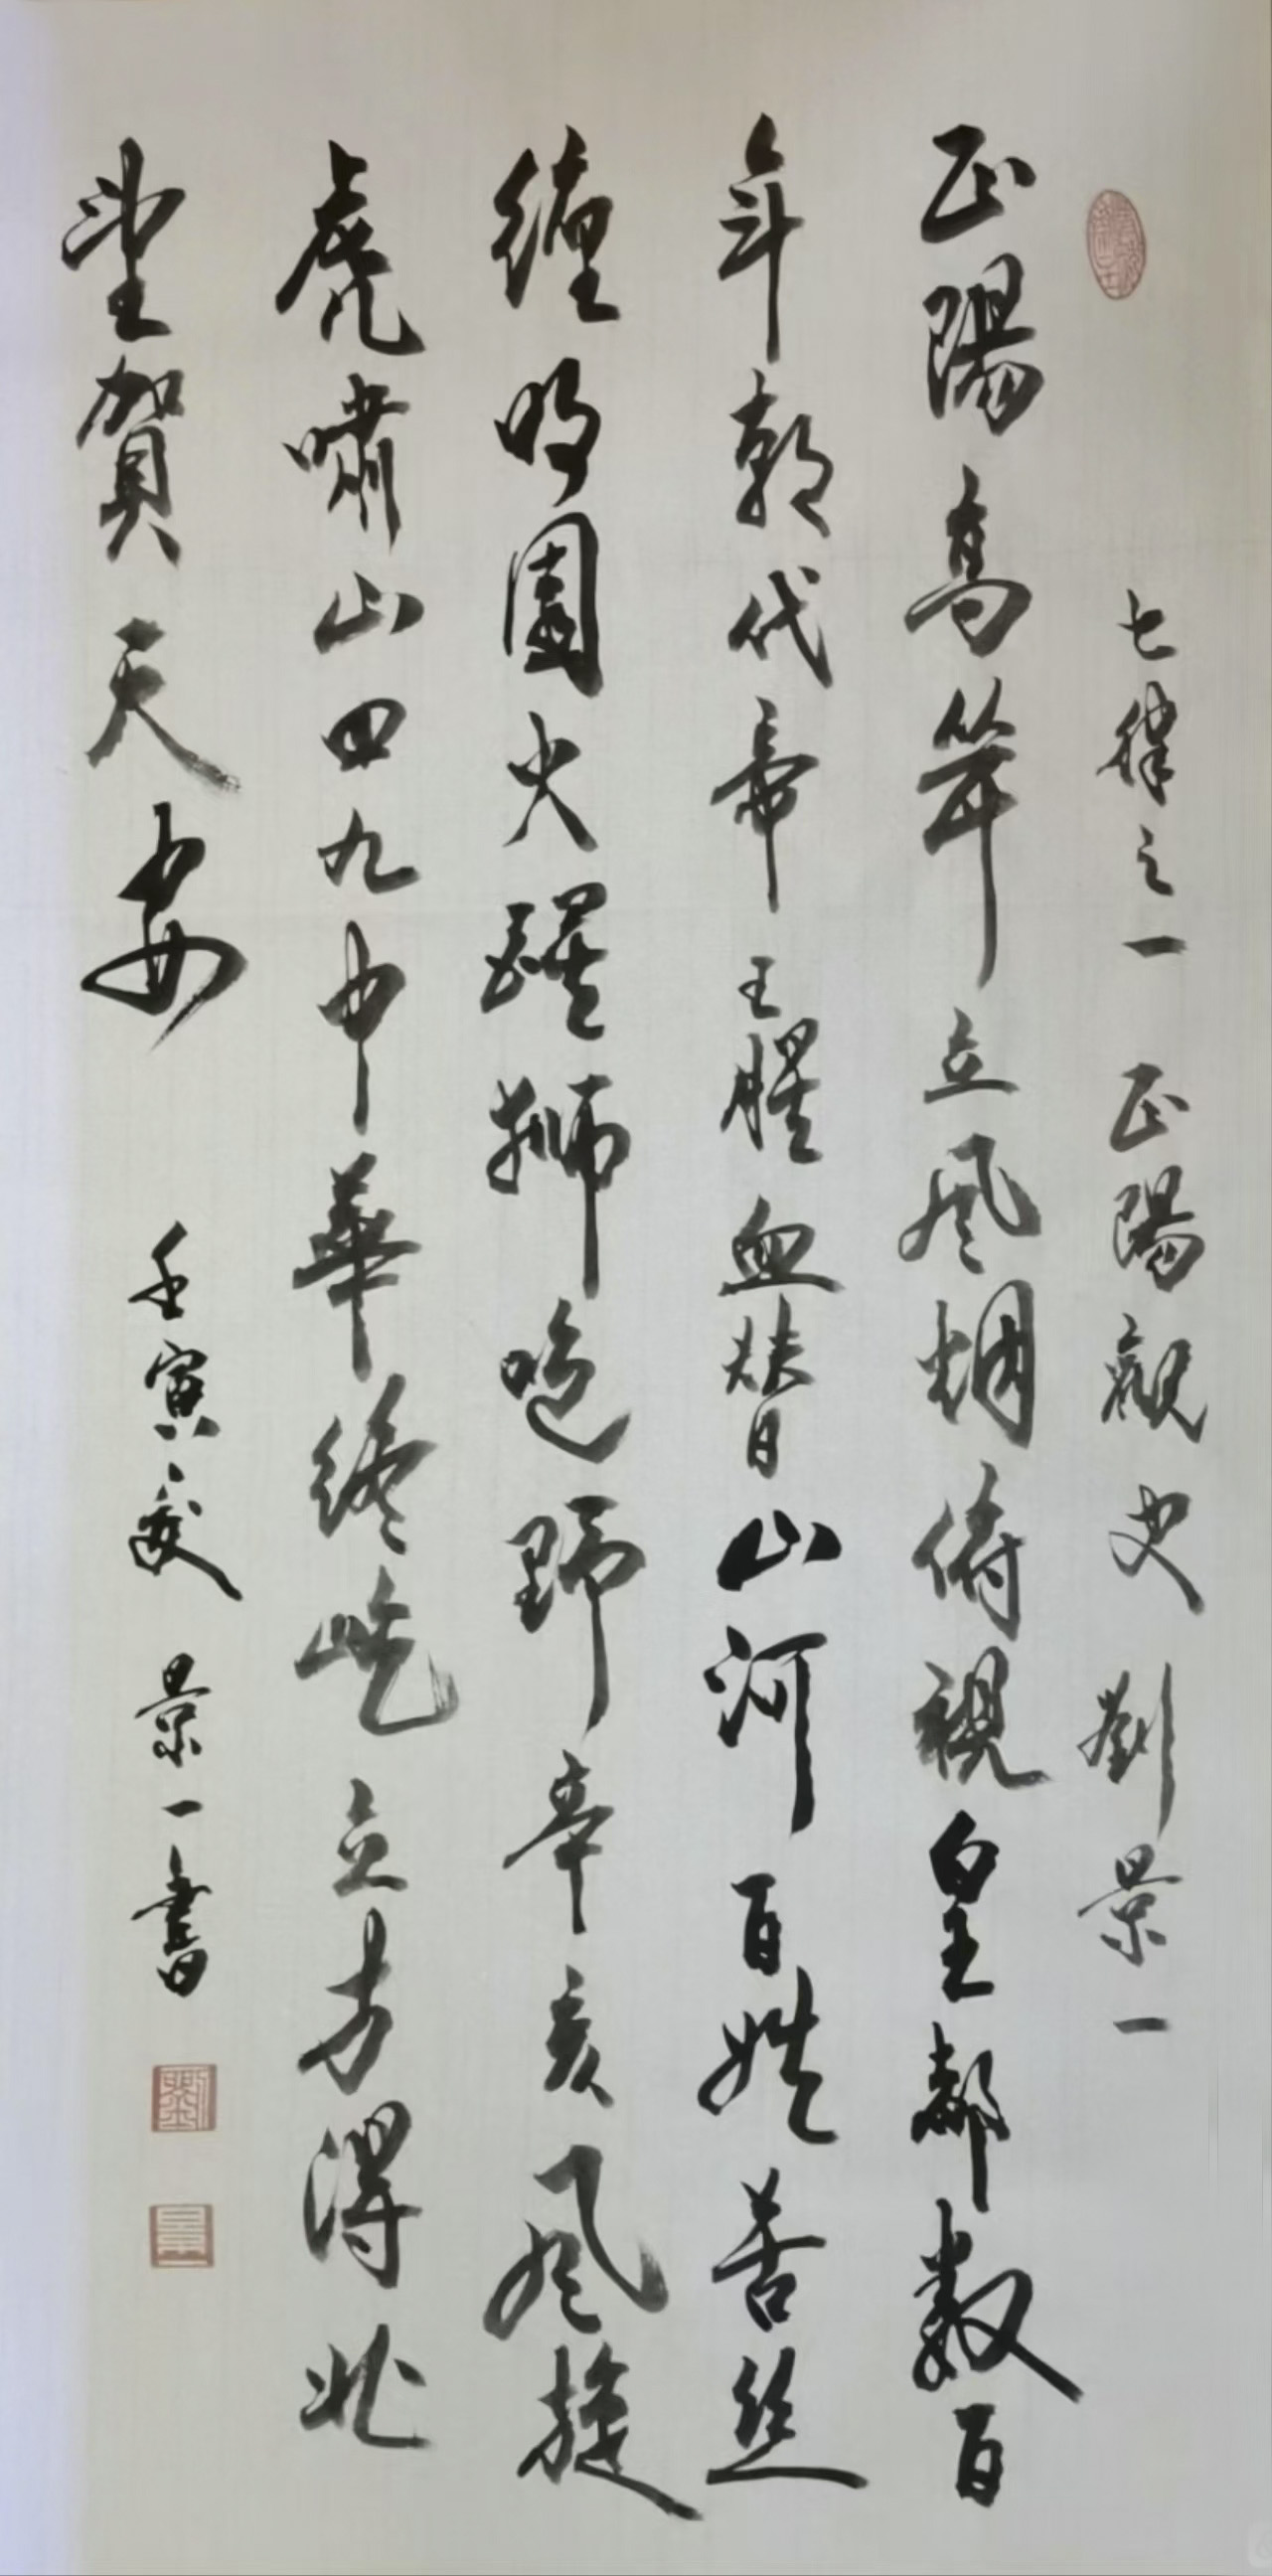 七律之一 正陽觀史 劉景一
正陽高聳立風烟俯視皇都數百
年朝代帝王腥血替山河百姓苦絲
纏明園火躍獅咆野辛亥風旋
虎嘯山四九中華終屹立方得此
望賀天安
壬寅夏 景一書
劉
景一